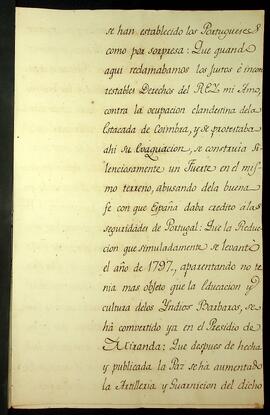 se han establecido los Portugueses
como por sorpresa: Que quando
aqui reclamabamos los Justos è incon
testables Derechos del REY mi Amo,
contra la ocupacion clandestina dela
Estacada de Coimbra, y se protestaba
ahi su Evaquacion, se construia si
lenciosamente un Fuerte en el mis
mo terreno, abusando dela buena
fe con que España daba credito alas
seguridades de Portugal: Que la Reduc
cion que simuladamente se levantò
el año de 1797., aparentando no te
nia mas objeto que la Educacion y
cultura delos Yndios Barbaros, se
hà comvertido ya en el Presidio de
Miranda: Que despues de hecha
y publicada la Paz se hà aumentado
la Artilleria y Guarnicion del dicho